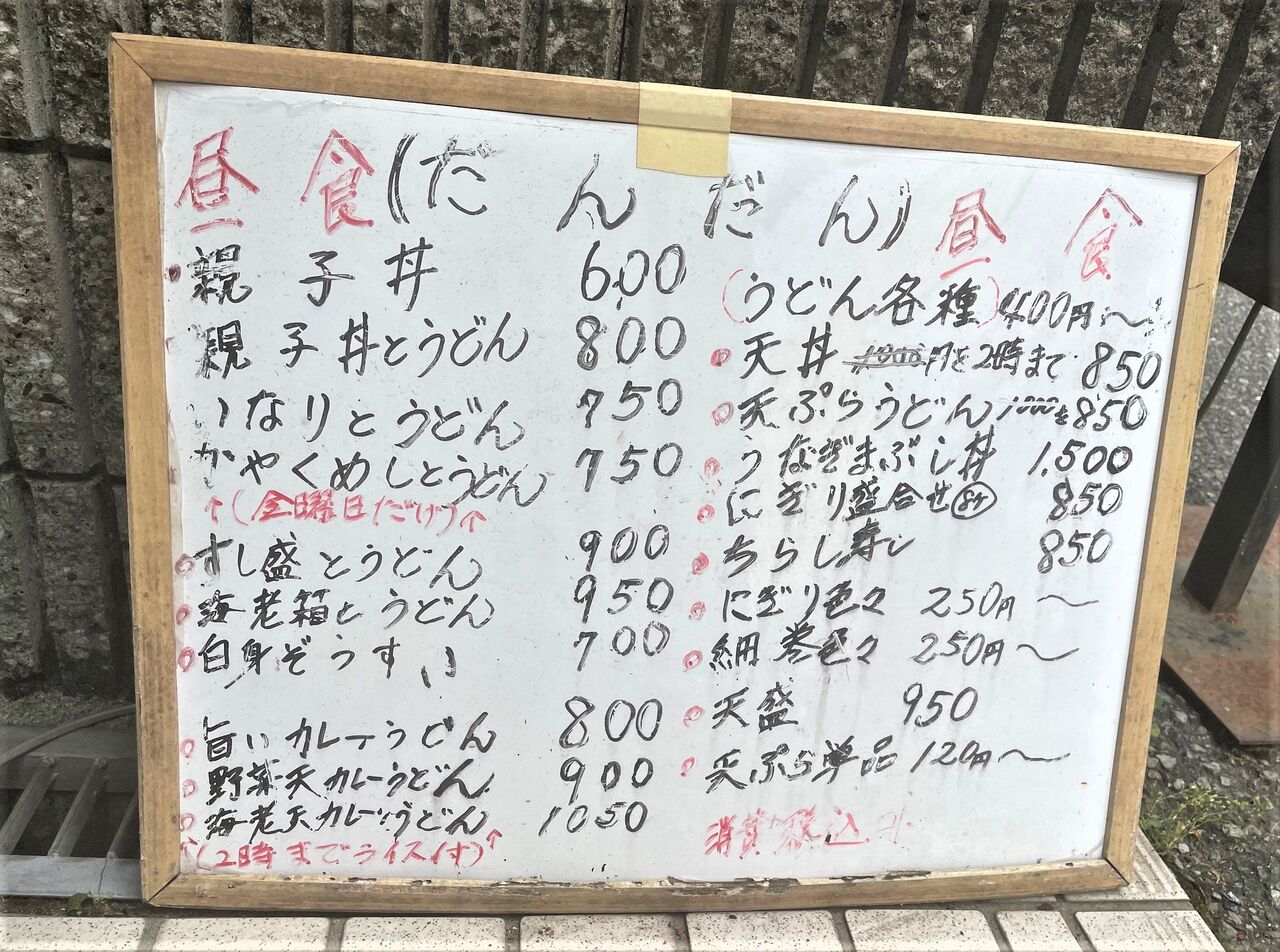 昼食(だんだん)昼食
親子丼 600
親子丼とうどん 800
いなりとうどん 750
かやくめしとうどん 750
↑(金曜日だけ)↑
すし盛とうどん 900
海老箱とうどん 950
白身ぞうすい 700
旨いカレーうどん 800
野菜天カレーうどん 900
海老天カレーうどん 1050
↑(2時までライス付)↑
(うどん各種)400円〜
天丼 1000円を2時まで 850
天ぷらうどん 1000を850
うなぎまぶし丼 1,500
にぎり盛合せ 8ケ 850
ちらし寿し 850
にぎり色々 250円〜
細巻色々 250円〜
天盛 950
天ぷら単品 120円〜
消費税込